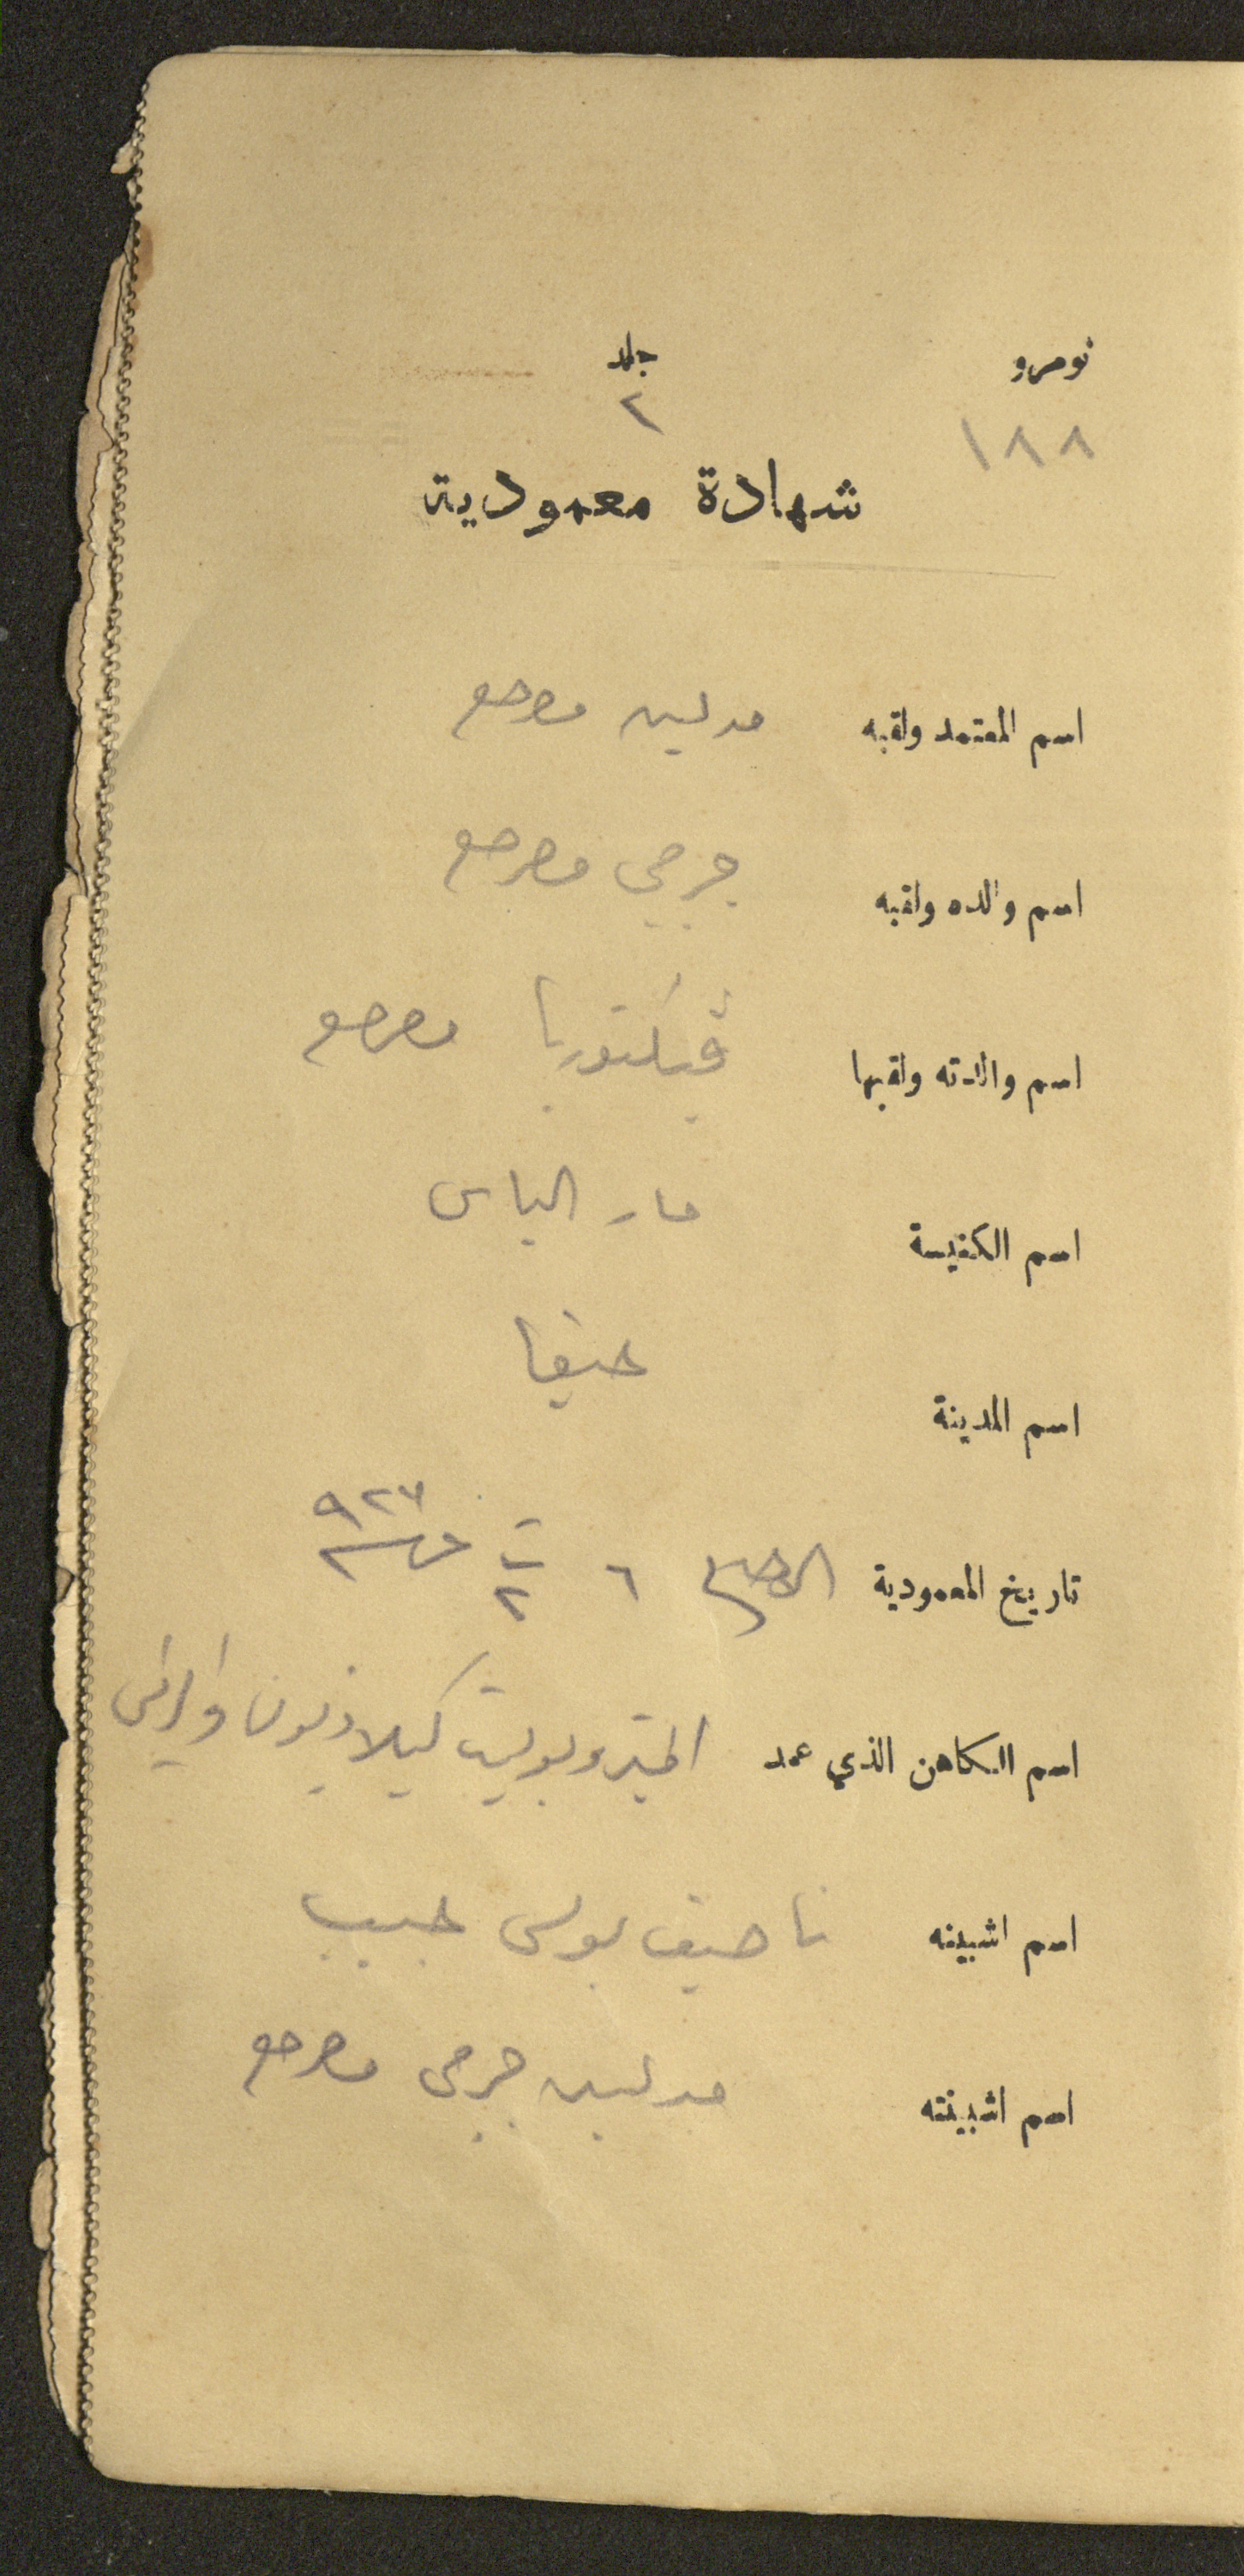 نومرو جلد
١٨٨ ٢
شهادة معمودية
اسم المعتمد ولقبه مدلين
اسم والده ولقبه جرجي
اسم والدته ولقبها ڤيكتوريا
اسم الكنيسة مار الياس
اسم المدينة حيفا
تاريخ المعمودية الاحد ٦ ت٢ سنة ٩٢٧
اسم الكاهن الذي عمد المتروبوليت كيلاذيون
اسم اشبينه ناصيف بولس حبيب
اسم اشبينته مدلين جرجي